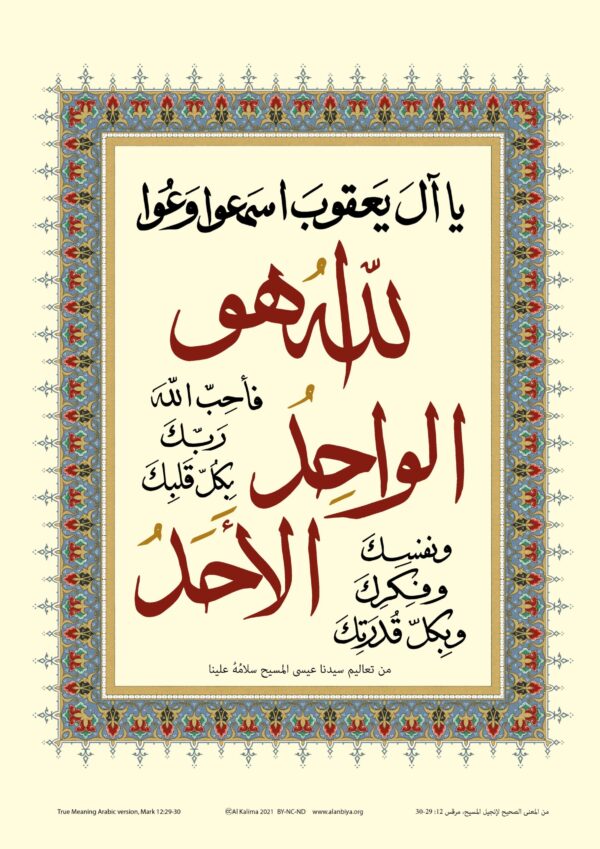 يا آلَ يَعقوبَ اسمَعوا وَعُوا
اللّهُ هو
الواحِدُ
الأحَدُ
فأحِبّ اللّهَ
رَبّكَ
بِكُلّ قَلبِكَ
ونفسِكَ
وفِكرِكَ
وبِكلّ قُدرَتِكَ
من تعاليم سيدنا عيسى المسيح سلامُهُ علينا
True Meaning Arabic version, Mark 12:29-30
©Al Kalima 2021 BY-NC-ND www.alanbiya.org
من المعنى الصحيح لإنجيل المسيح، مرقس 12: 29-30